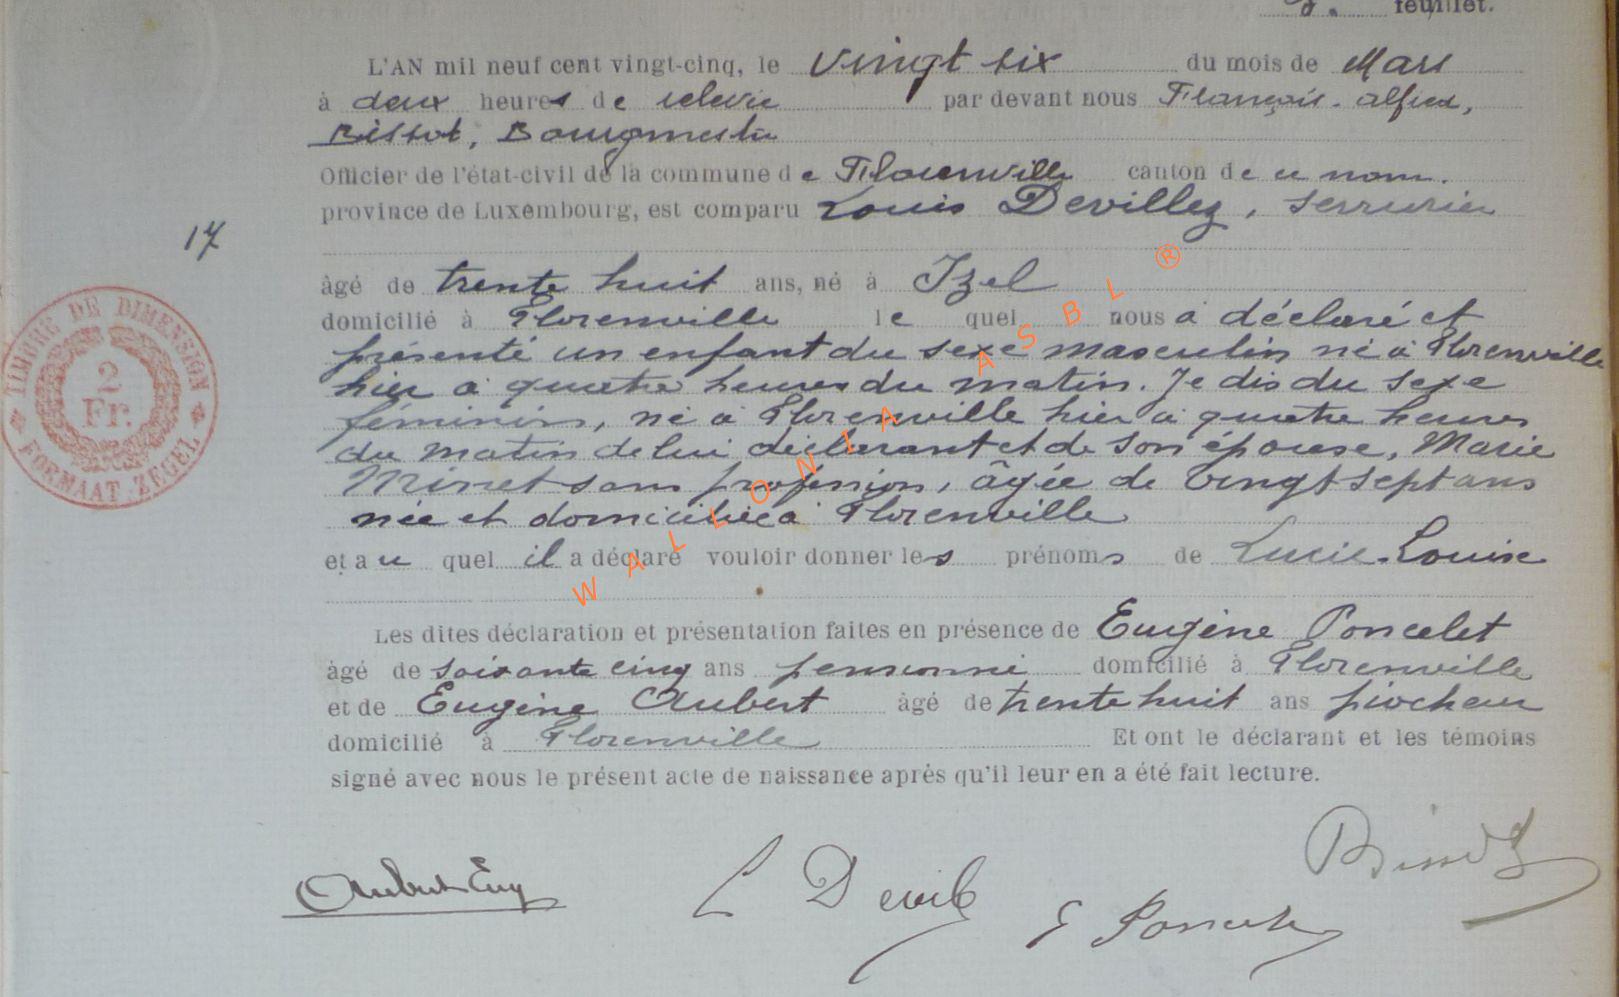 8. feuillet.
L'AN mil neuf cent vingt-cinq, le vingt six du mois de Mars
à deux heures de relevée par devant nous François-Alfred,
Bissot, Bourgmestre
Officier de l'état-civil de la commune de Florenville canton de ce nom.
province de Luxembourg, est comparu Louis Devillez, serrurier
17
âgé de trente huit ans, né à Izel
domicilié à Florenville le quel nous a déclaré et
présenté un enfant du sexe masculin né à Florenville
hier à quatre heures du matin. Je dis du sexe
féminin, né à Florenville hier à quatre heures
du matin de lui déclarant et de son épouse, Marie
Minet sans profession, âgée de vingt sept ans
née et domiciliée à Florenville
et au quel il a déclaré vouloir donner les prénoms de Lucie-Louise
Les dites déclaration et présentation faites en présence de Eugène Poncelet
âgé de soixante cinq ans pensionné domicilié à Florenville
et de Eugène Aubert âgé de trente huit ans piocheur
domicilié à Florenville Et ont le déclarant et les témoins
signé avec nous le présent acte de naissance après qu'il leur en a été fait lecture.
Aubert Eug L Devillez E Poncelet Bissot
TIMBRE DE DIMENSION
2
Fr.
FORMAAT ZEGEL
WALLONIA ASBL ®